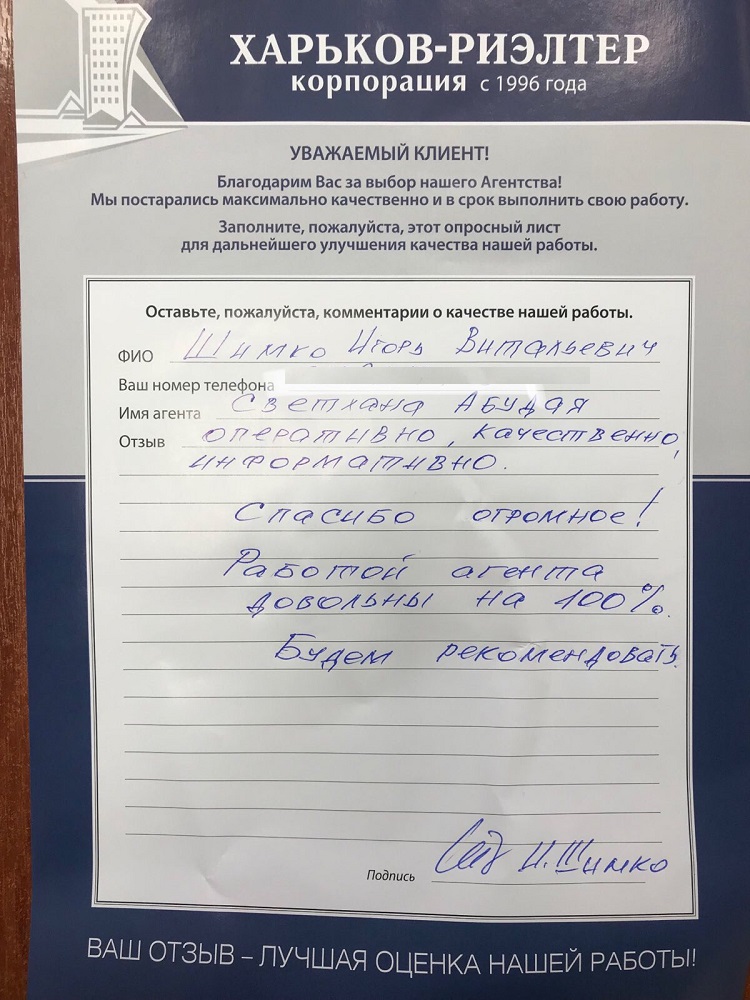 ХАРЬКОВ-РИЭЛТЕР
корпорация с 1996 года
УВАЖАЕМЫЙ КЛИЕНТ!
Благодарим Вас за выбор нашего Агентства!
Мы постарались максимально качественно и в срок выполнить свою работу.
Заполните, пожалуйста, этот опросный лист
для дальнейшего улучшения качества нашей работы.
Оставьте, пожалуйста, комментарии о качестве нашей работы.
ФИО Шимко Игорь Витальевич
Ваш номер телефона
Имя агента Светлана Абудая
Отзыв оперативно, качественно,
информативно.
Спасибо огромное!
Работой агента
довольны на 100%.
Будем рекомендовать.
Подпись И. Шимко
ВАШ ОТЗЫВ – ЛУЧШАЯ ОЦЕНКА НАШЕЙ РАБОТЫ!